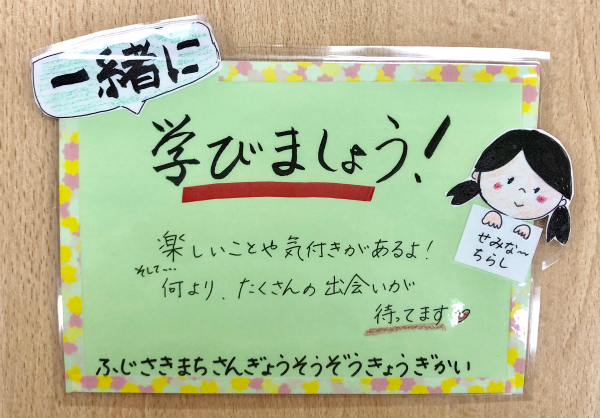 一緒に
学びましょう!
楽しいことや気付きがあるよ!
そして…
何より、たくさんの出会いが
待ってます
せみな〜
ちらし
ふじさきまちさんぎょうそうぞうきょうぎかい